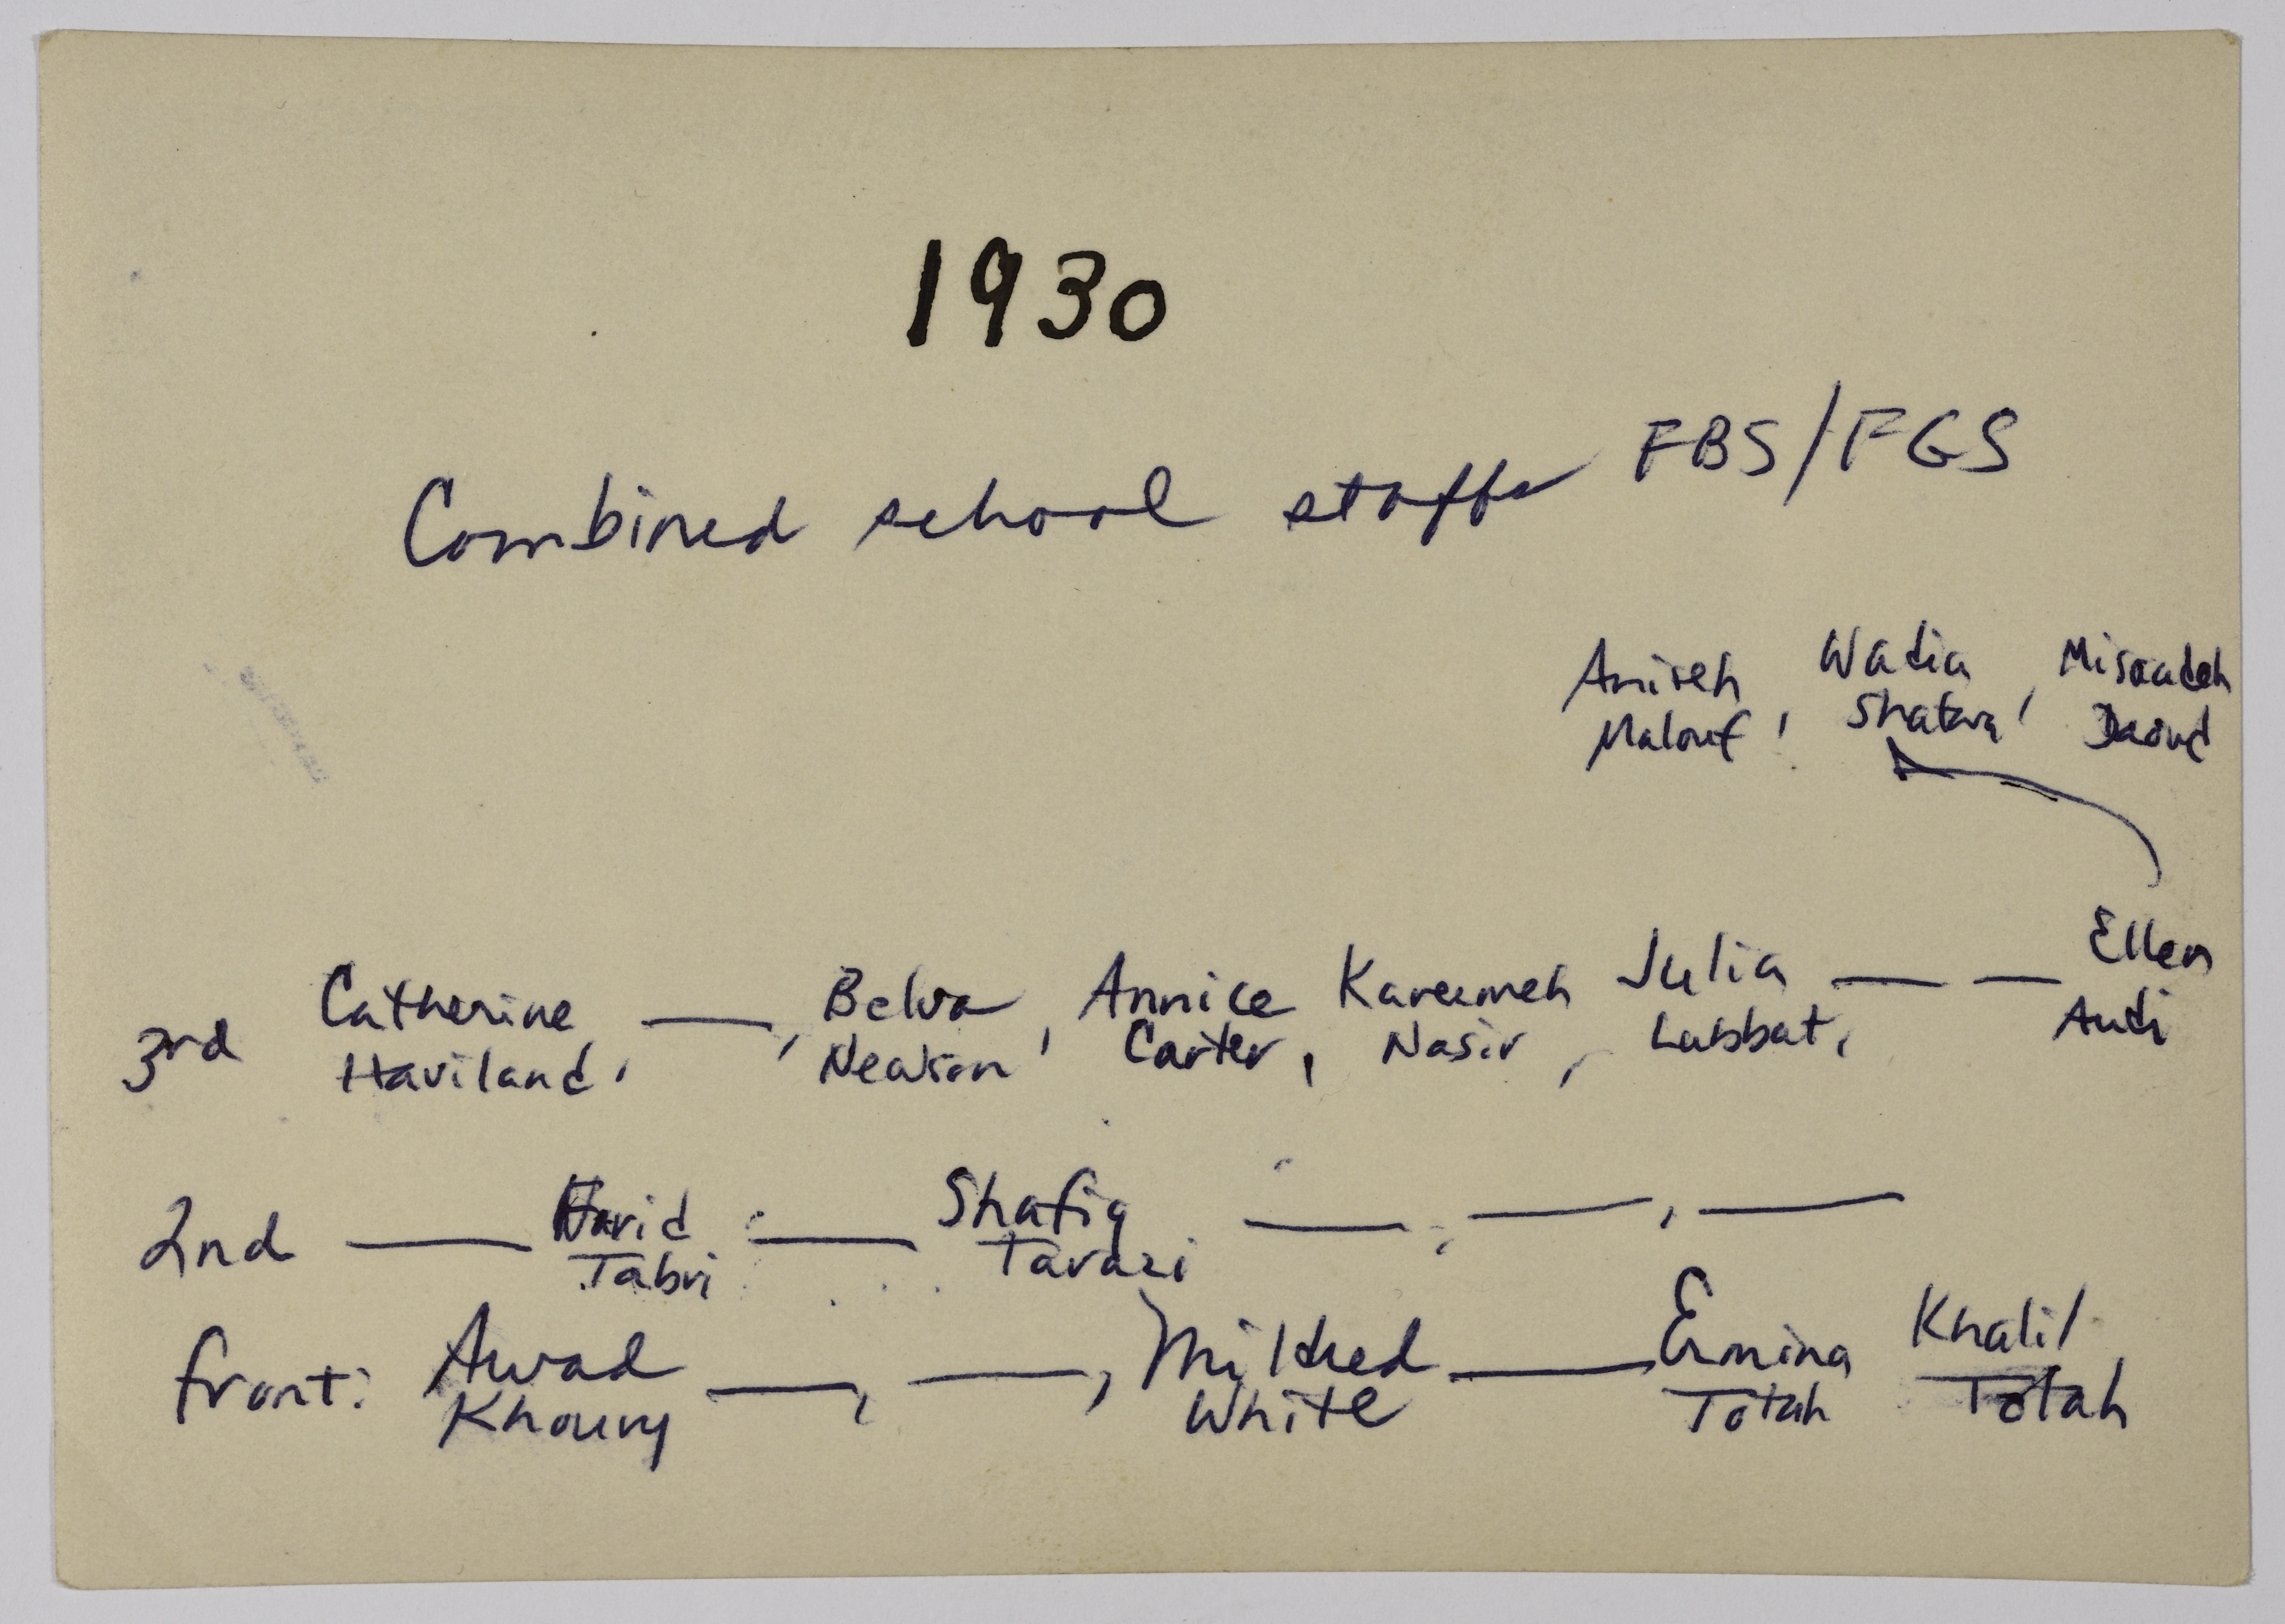 1930
Combined school staffs FBS/FGS
Aniseh Wadia Misaadeh
Malouf, Shatara, Daoud
Ellen
3rd Catherine —, Belva, Annice Kareemeh Julia — — Audi
Haviland, Newsom Carter, Nasir, Labbat,
2nd — Farid — Shafiq —, —, —
Tabri Tarazi
front: Awad —, —, Mildred — Ermina Khalil
Khoury White Totah Totah